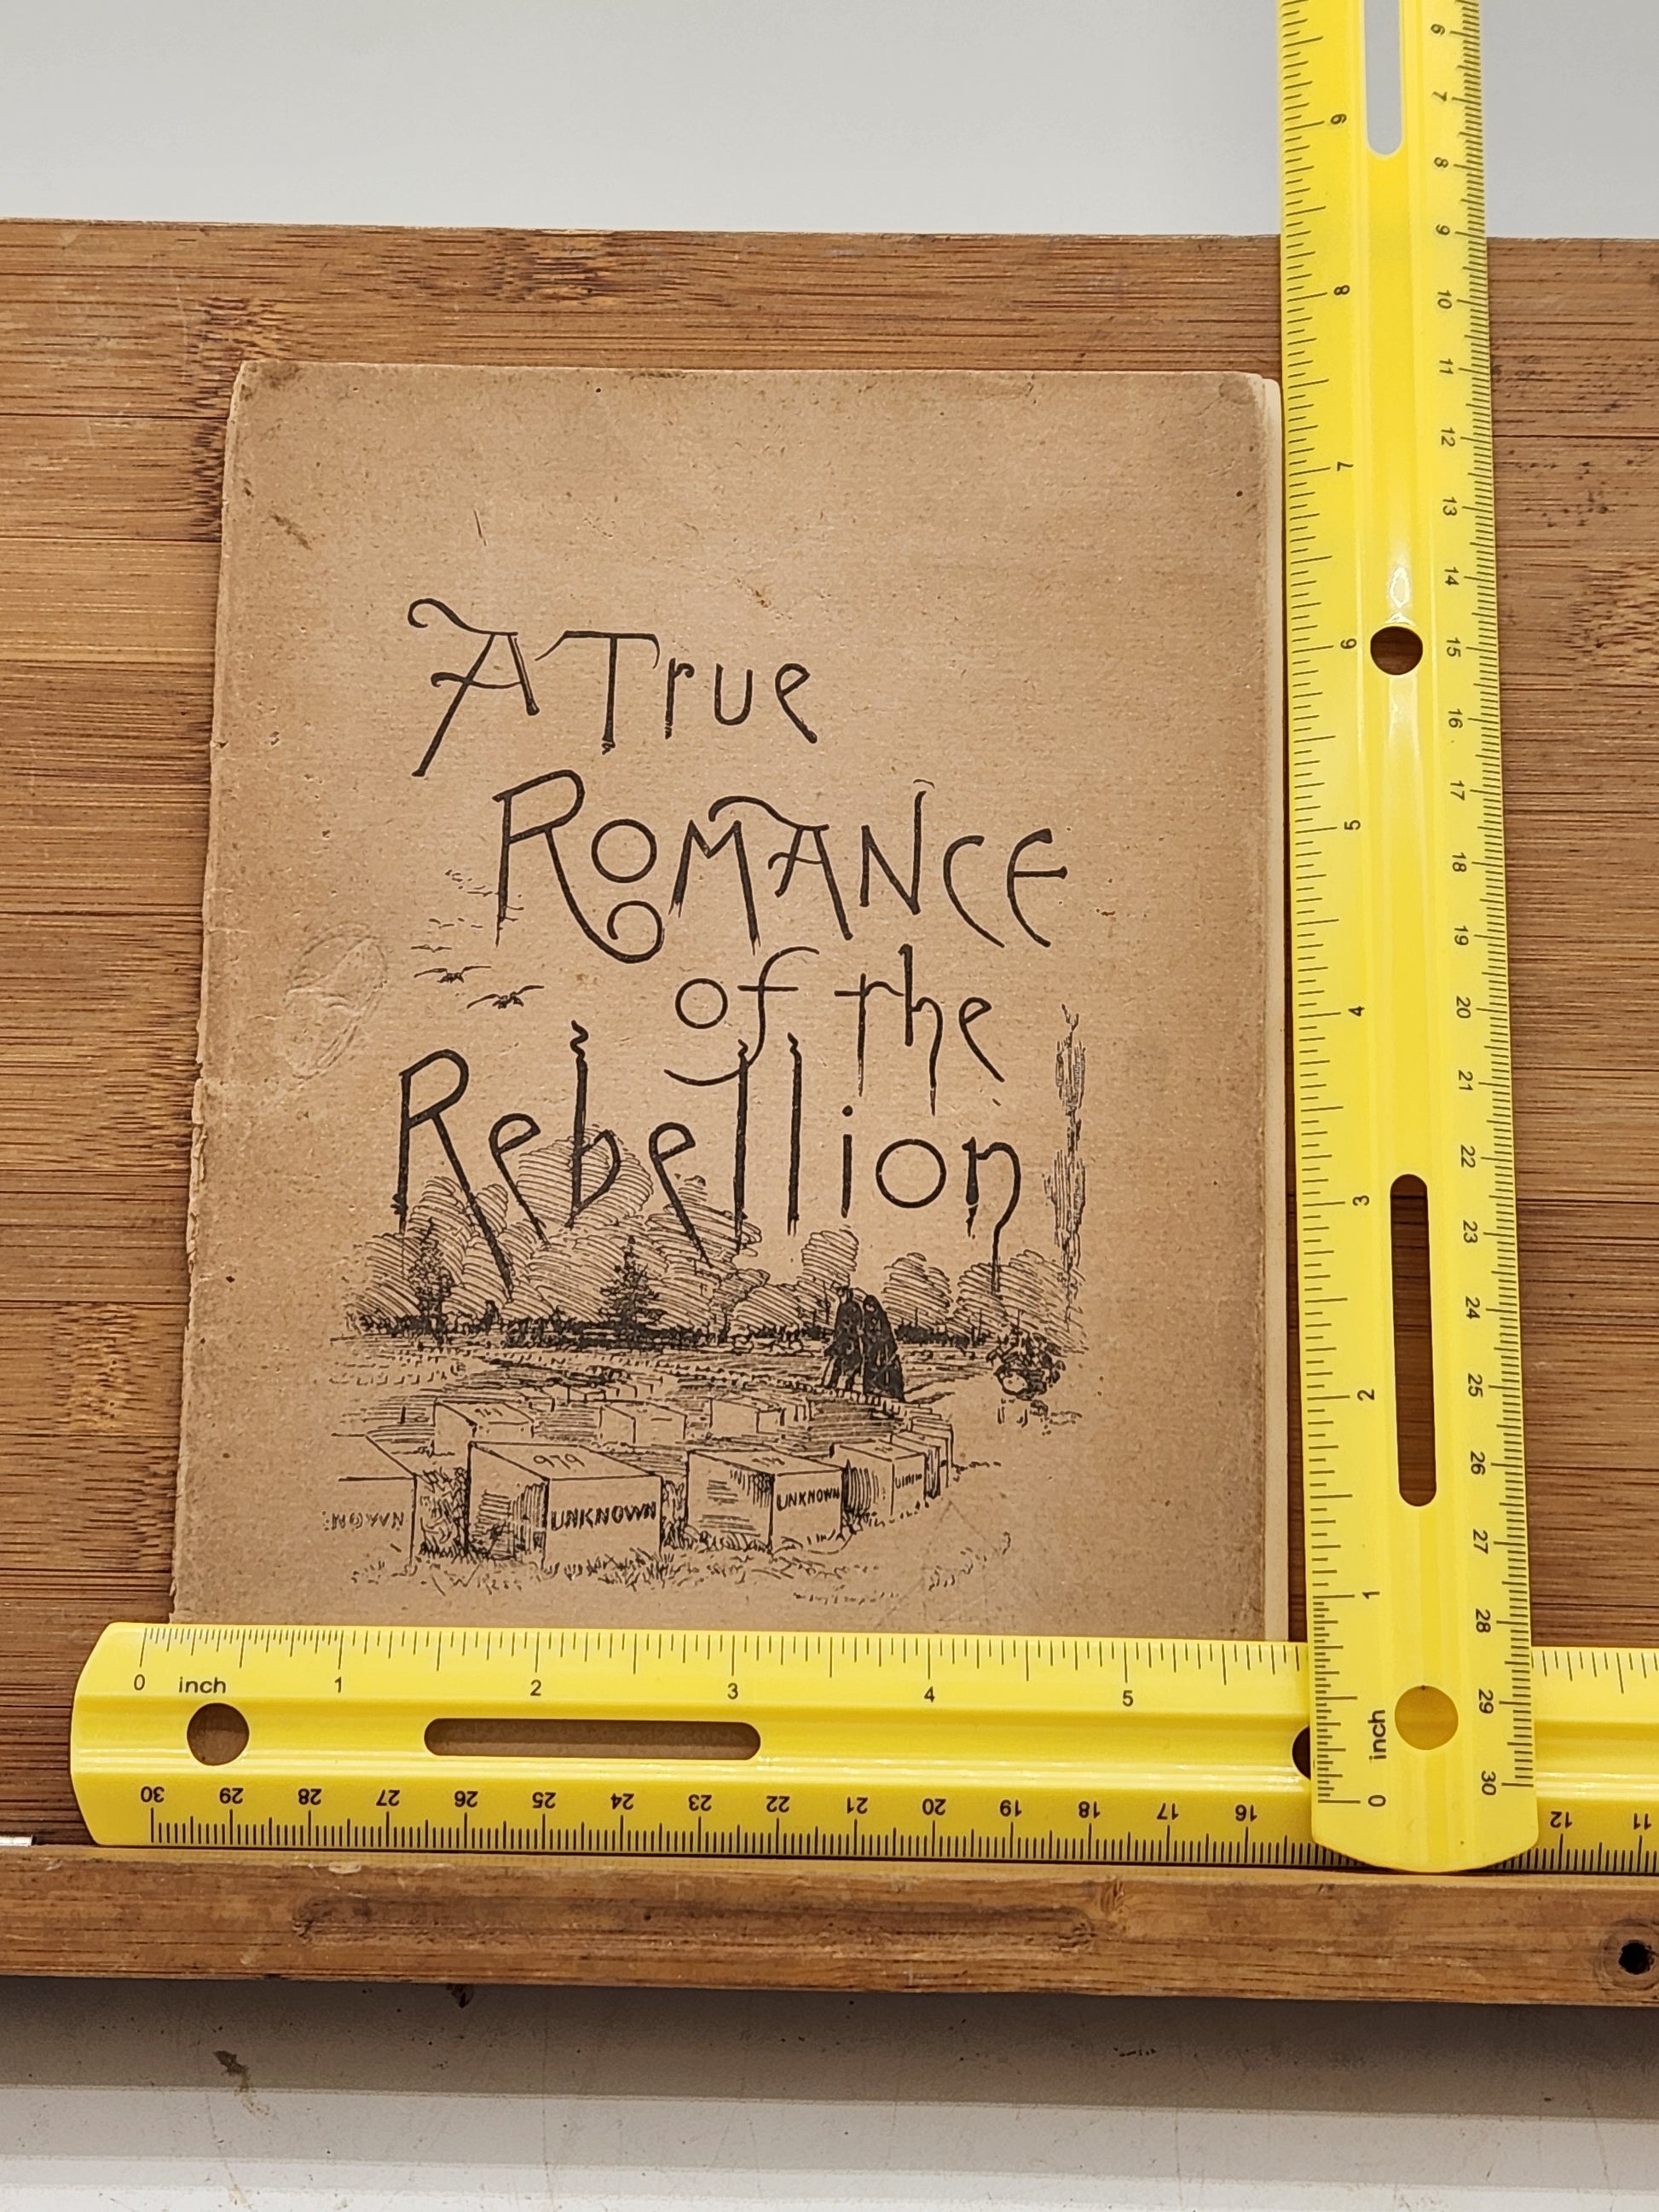 A True
Romance
of the
Rebellion
979
UNKNOWN
UNKNOWN
0 inch 1 2 3 4 5
30 29 28 27 26 25 24 23 22 21 20 19 18 17 16 12 11
6 7 8 9 10 11 12 13 14 15 16 17 18 19 20 21 22 23 24 25 26 27 28 29 30
9 8 7 6 5 4 3 2 1 inch 0